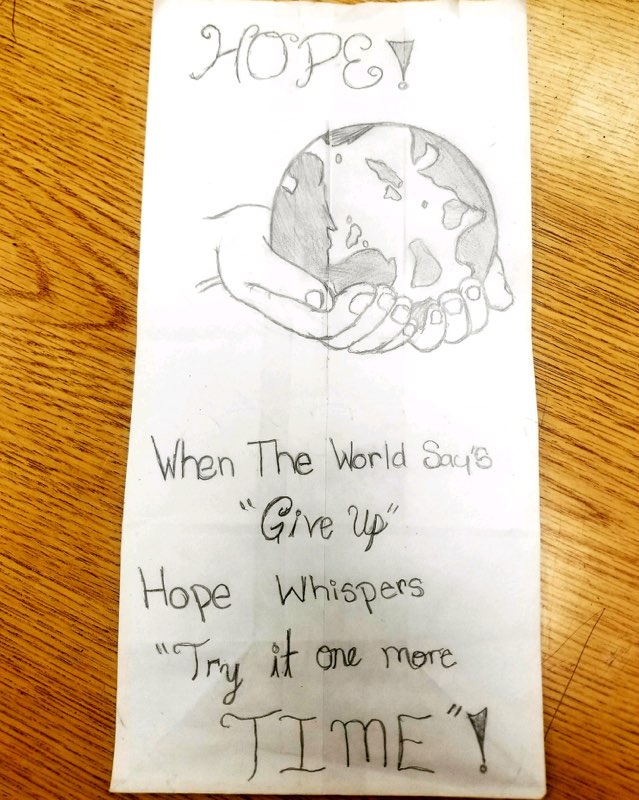 HOPE!
When The World Say's
"Give Up"
Hope Whispers
"Try it one more
TIME"!